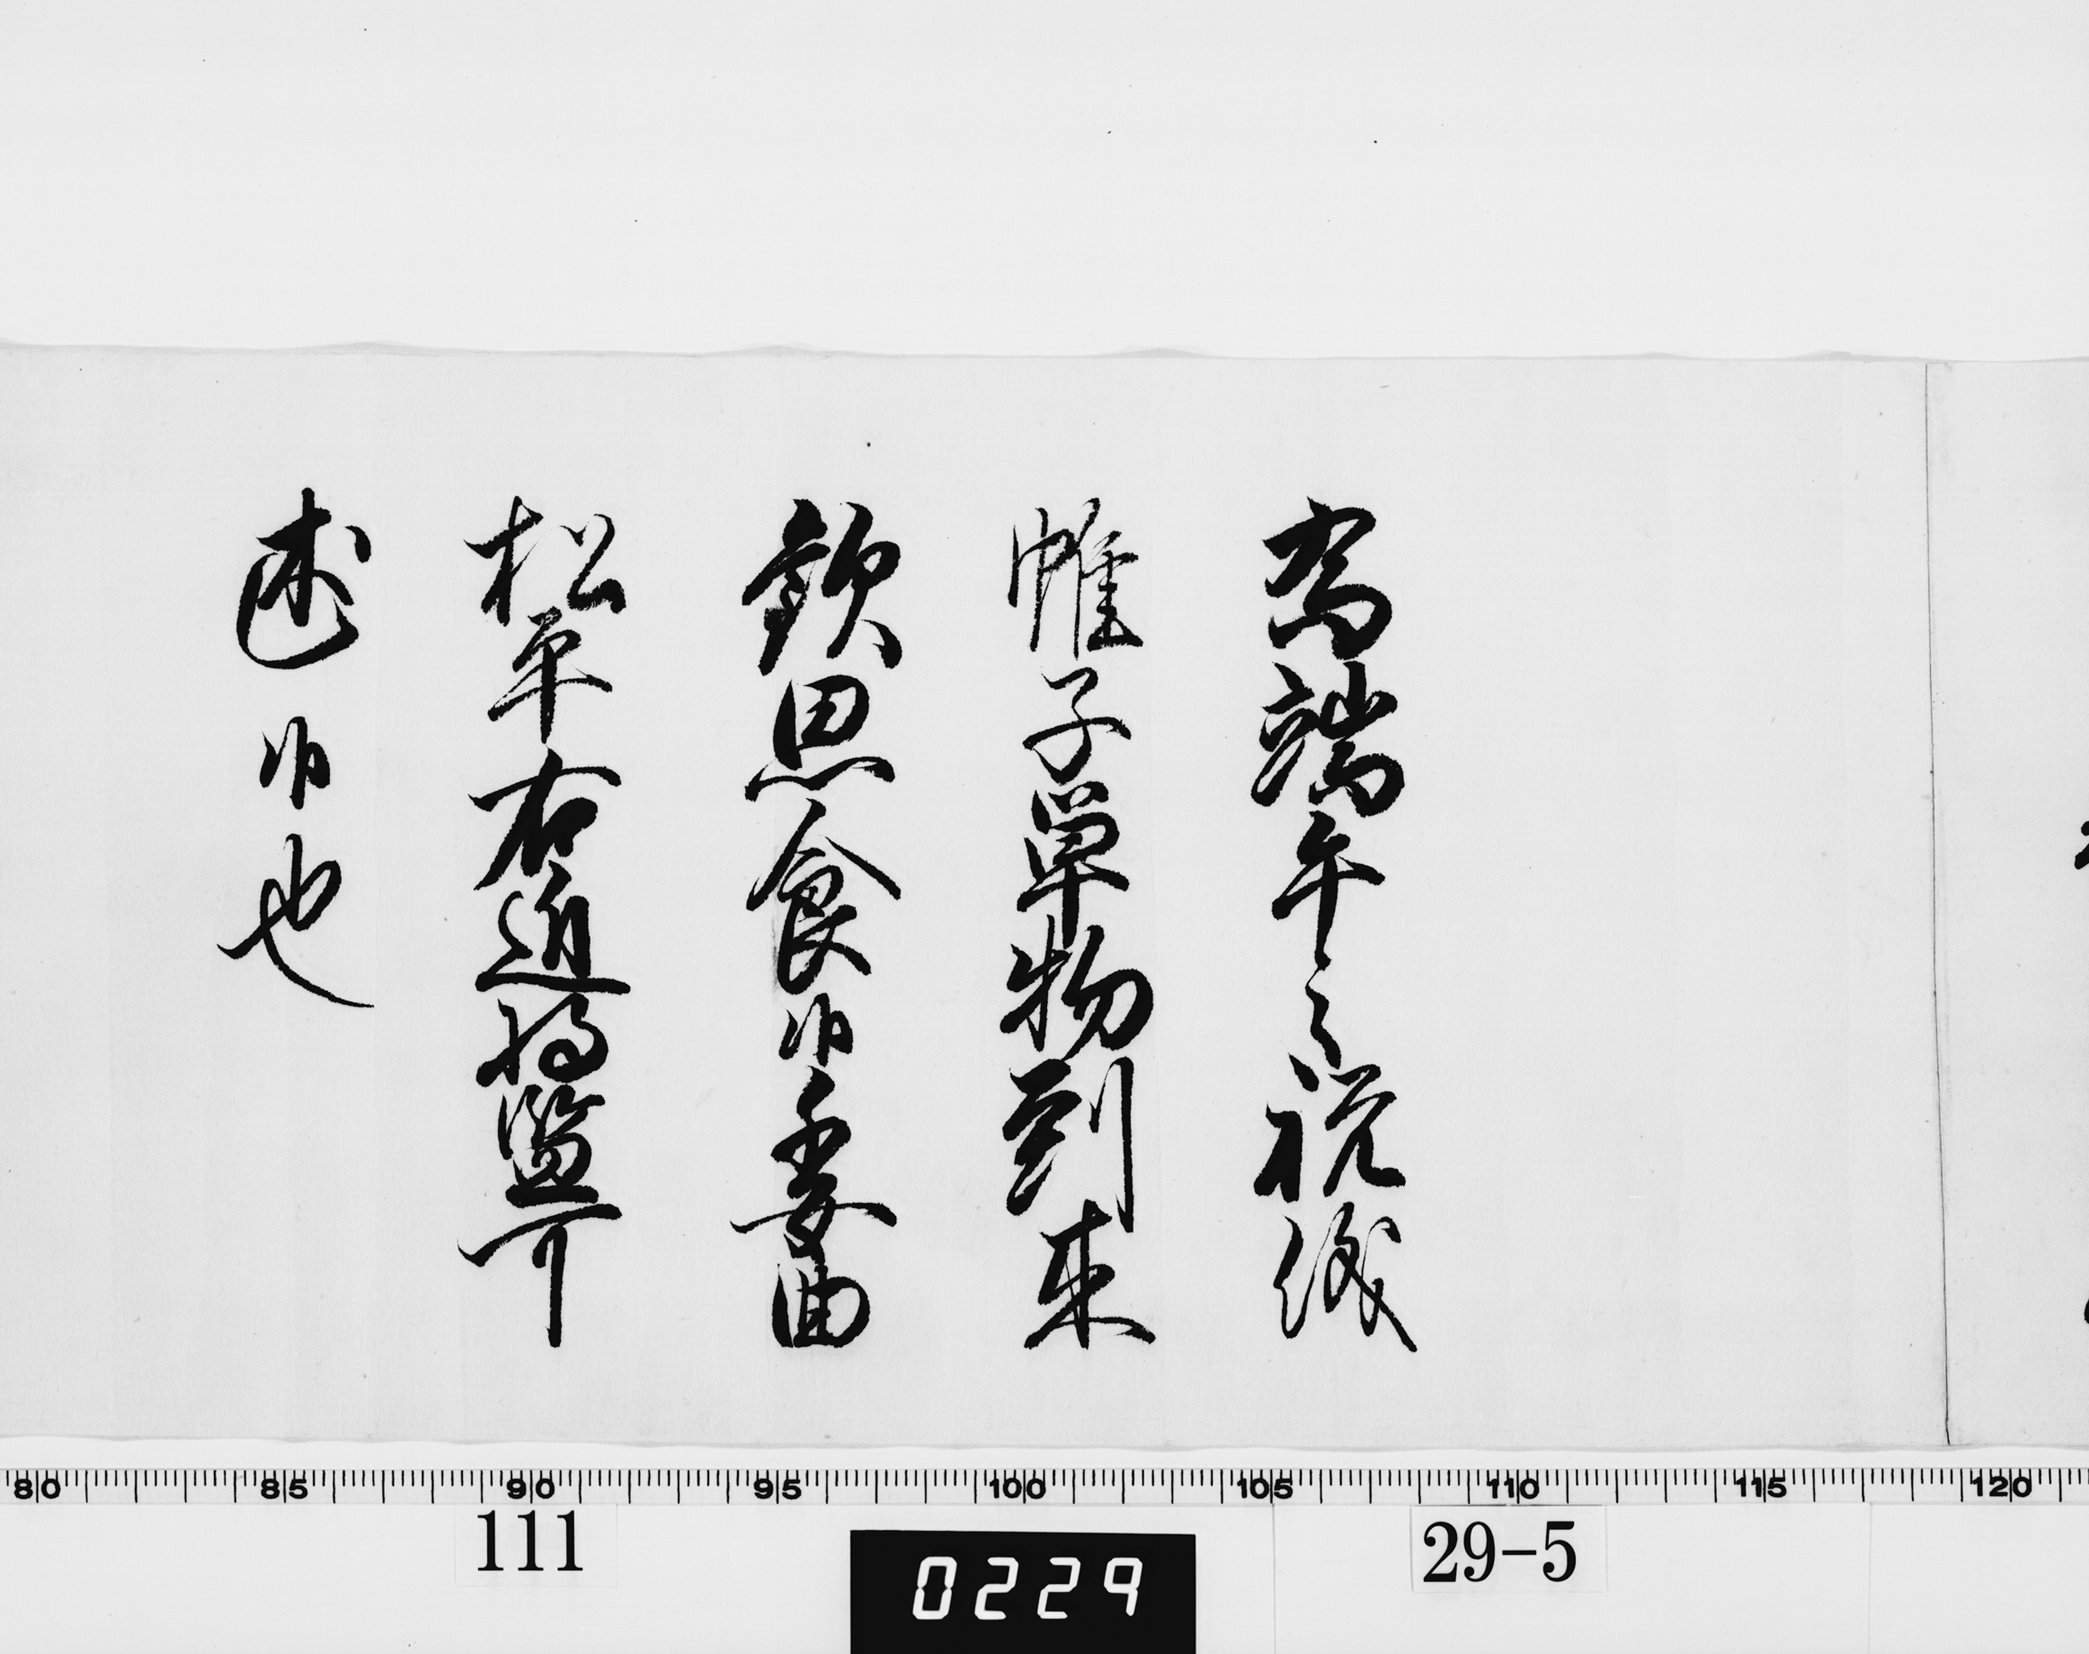 為端午之祝儀
帷子単物到来
歓思食候委曲
松平右近将監可
述候也
80 85 90 95 100 105 110 115 120
111
0229
29-5